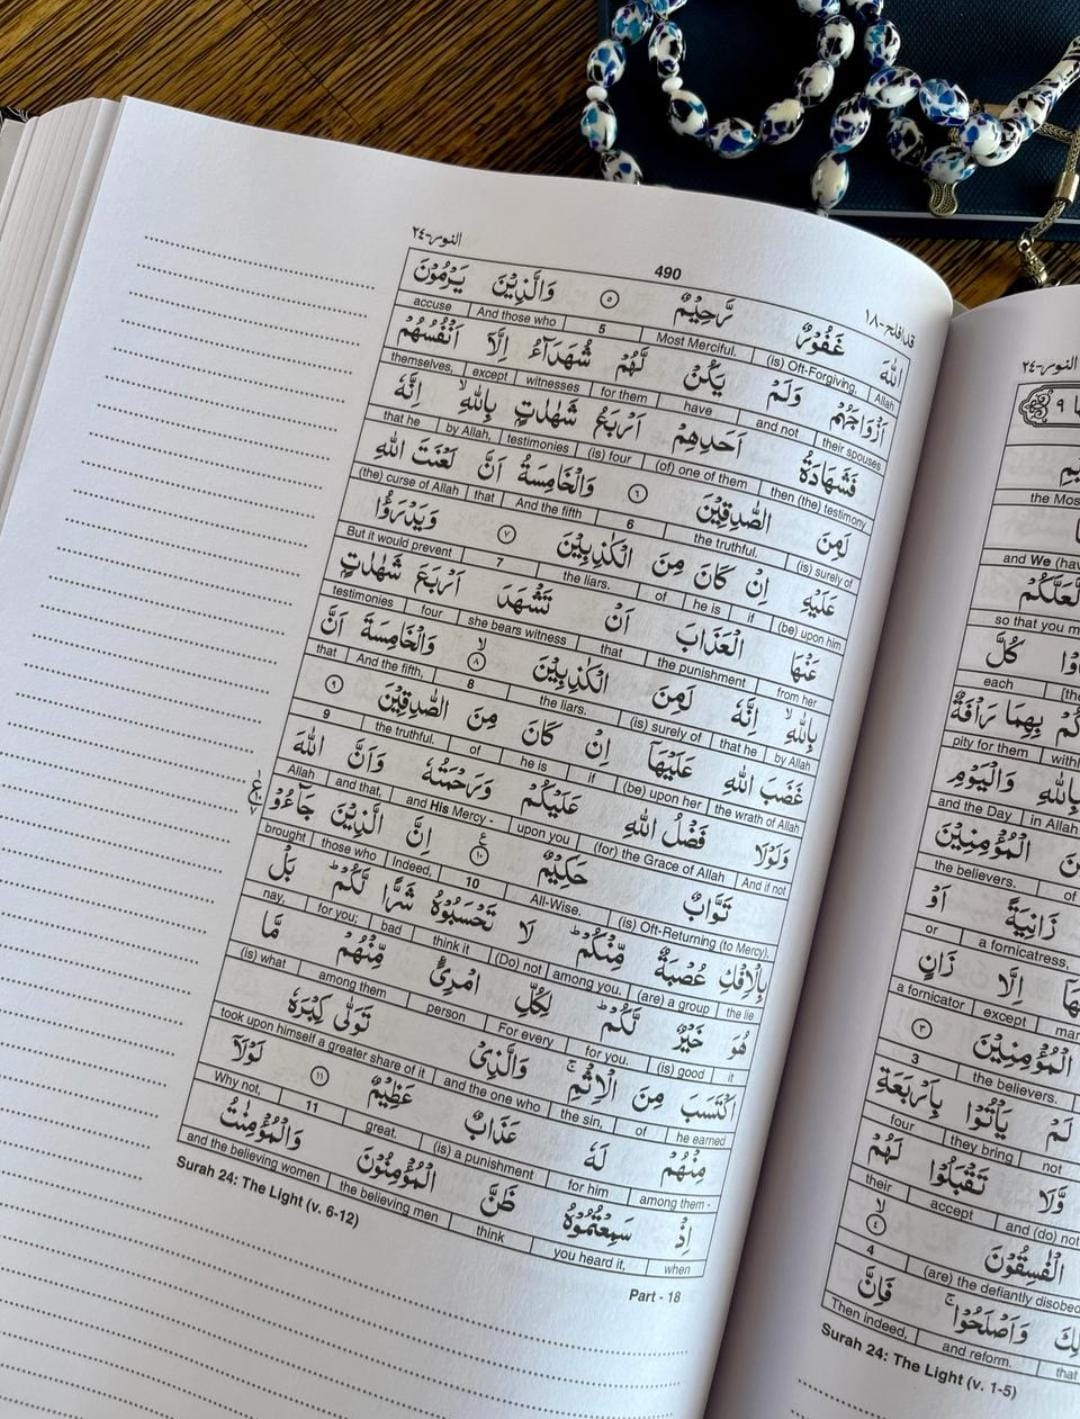 قد افلح-١٨ 490 النور-٢٤
اللّٰهَ غَفُوۡرٌ رَّحِيۡمٌ ۵ وَالَّذِيۡنَ يَرۡمُوۡنَ
Allah (is) Oft-Forgiving, Most Merciful. 5 And those who accuse
اَزۡوَاجَهُمۡ وَلَمۡ يَكُنۡ لَّهُمۡ شُهَدَآءُ اِلَّاۤ اَنۡفُسُهُمۡ
their spouses and not have for them witnesses except themselves,
فَشَهَادَةُ اَحَدِهِمۡ اَرۡبَعُ شَهٰدٰتٍۭ بِاللّٰهِ‌ۙ اِنَّهٗ
then (the) testimony (of) one of them (is) four testimonies by Allah, that he
لَمِنَ الصّٰدِقِيۡنَ ۶ وَالۡخَامِسَةُ اَنَّ لَعۡنَتَ اللّٰهِ
(is) surely of the truthful. 6 And the fifth that (the) curse of Allah
عَلَيۡهِ اِنۡ كَانَ مِنَ الۡكٰذِبِيۡنَ ۷ وَيَدۡرَؤُا
(be) upon him if he is of the liars. 7 But it would prevent
عَنۡهَا الۡعَذَابَ اَنۡ تَشۡهَدَ اَرۡبَعَ شَهٰدٰتٍۭ
from her the punishment that she bears witness four testimonies
بِاللّٰهِ‌ۙ اِنَّهٗ لَمِنَ الۡكٰذِبِيۡنَ ۙ‏ ۸ وَالۡخَامِسَةَ اَنَّ
by Allah that he (is) surely of the liars. 8 And the fifth, that
غَضَبَ اللّٰهِ عَلَيۡهَاۤ اِنۡ كَانَ مِنَ الصّٰدِقِيۡنَ ۹
the wrath of Allah (be) upon her if he is of the truthful. 9
وَلَوۡلَا فَضۡلُ اللّٰهِ عَلَيۡكُمۡ وَرَحۡمَتُهٗ وَاَنَّ اللّٰهَ
And if not (for) the Grace of Allah upon you and His Mercy - and that, Allah
تَوَّابٌ حَكِيۡمٌ ۱۰ ع اِنَّ الَّذِيۡنَ جَآءُوۡ
(is) Oft-Returning (to Mercy), All-Wise. 10 Indeed, those who brought
بِالۡاِفۡكِ عُصۡبَةٌ مِّنۡكُمۡ‌ؕ لَا تَحۡسَبُوۡهُ شَرًّا لَّكُمۡ‌ؕ بَلۡ
the lie (are) a group among you. (Do) not think it bad for you; nay,
هُوَ خَيۡرٌ لَّكُمۡ‌ؕ لِكُلِّ امۡرِىٴٍ مِّنۡهُمۡ مَّا
it (is) good for you. For every person among them (is) what
اكۡتَسَبَ مِنَ الۡاِثۡمِ‌ۚ وَالَّذِىۡ تَوَلّٰى كِبۡرَهٗ
he earned of the sin, and the one who took upon himself a greater share of it
مِنۡهُمۡ لَهٗ عَذَابٌ عَظِيۡمٌ ۱۱ لَوۡلَاۤ
among them - for him (is) a punishment great. 11 Why not,
اِذۡ سَمِعۡتُمُوۡهُ ظَنَّ الۡمُؤۡمِنُوۡنَ وَالۡمُؤۡمِنٰتُ
when you heard it, think the believing men and the believing women
Surah 24: The Light (v. 6-12)
Part - 18
النور-٢٤
the
and We
لَعَلَّكُمۡ
so that you
كُلَّ
each
بِهِمَا رَاۡفَةٌ
pity for them
بِاللّٰهِ وَالۡيَوۡمِ
in Allah and the Day
الۡمُؤۡمِنِيۡنَ
of the believers.
زَانِيَةً اَوۡ
a fornicatress, or
اِلَّا زَانٍ
except a fornicator
الۡمُؤۡمِنِيۡنَ ۳
the believers. 3
لَمۡ يَاۡتُوۡا بِاَرۡبَعَةِ
not they bring four
وَّلَا تَقۡبَلُوۡا لَهُمۡ
and (do) not accept their
الۡفٰسِقُوۡنَ ۙ‏ ۴
(are) the defiantly 4
وَاَصۡلَحُوۡا‌ۚ فَاِنَّ
that and reform. Then indeed,
Surah 24: The Light (v. 1-5)